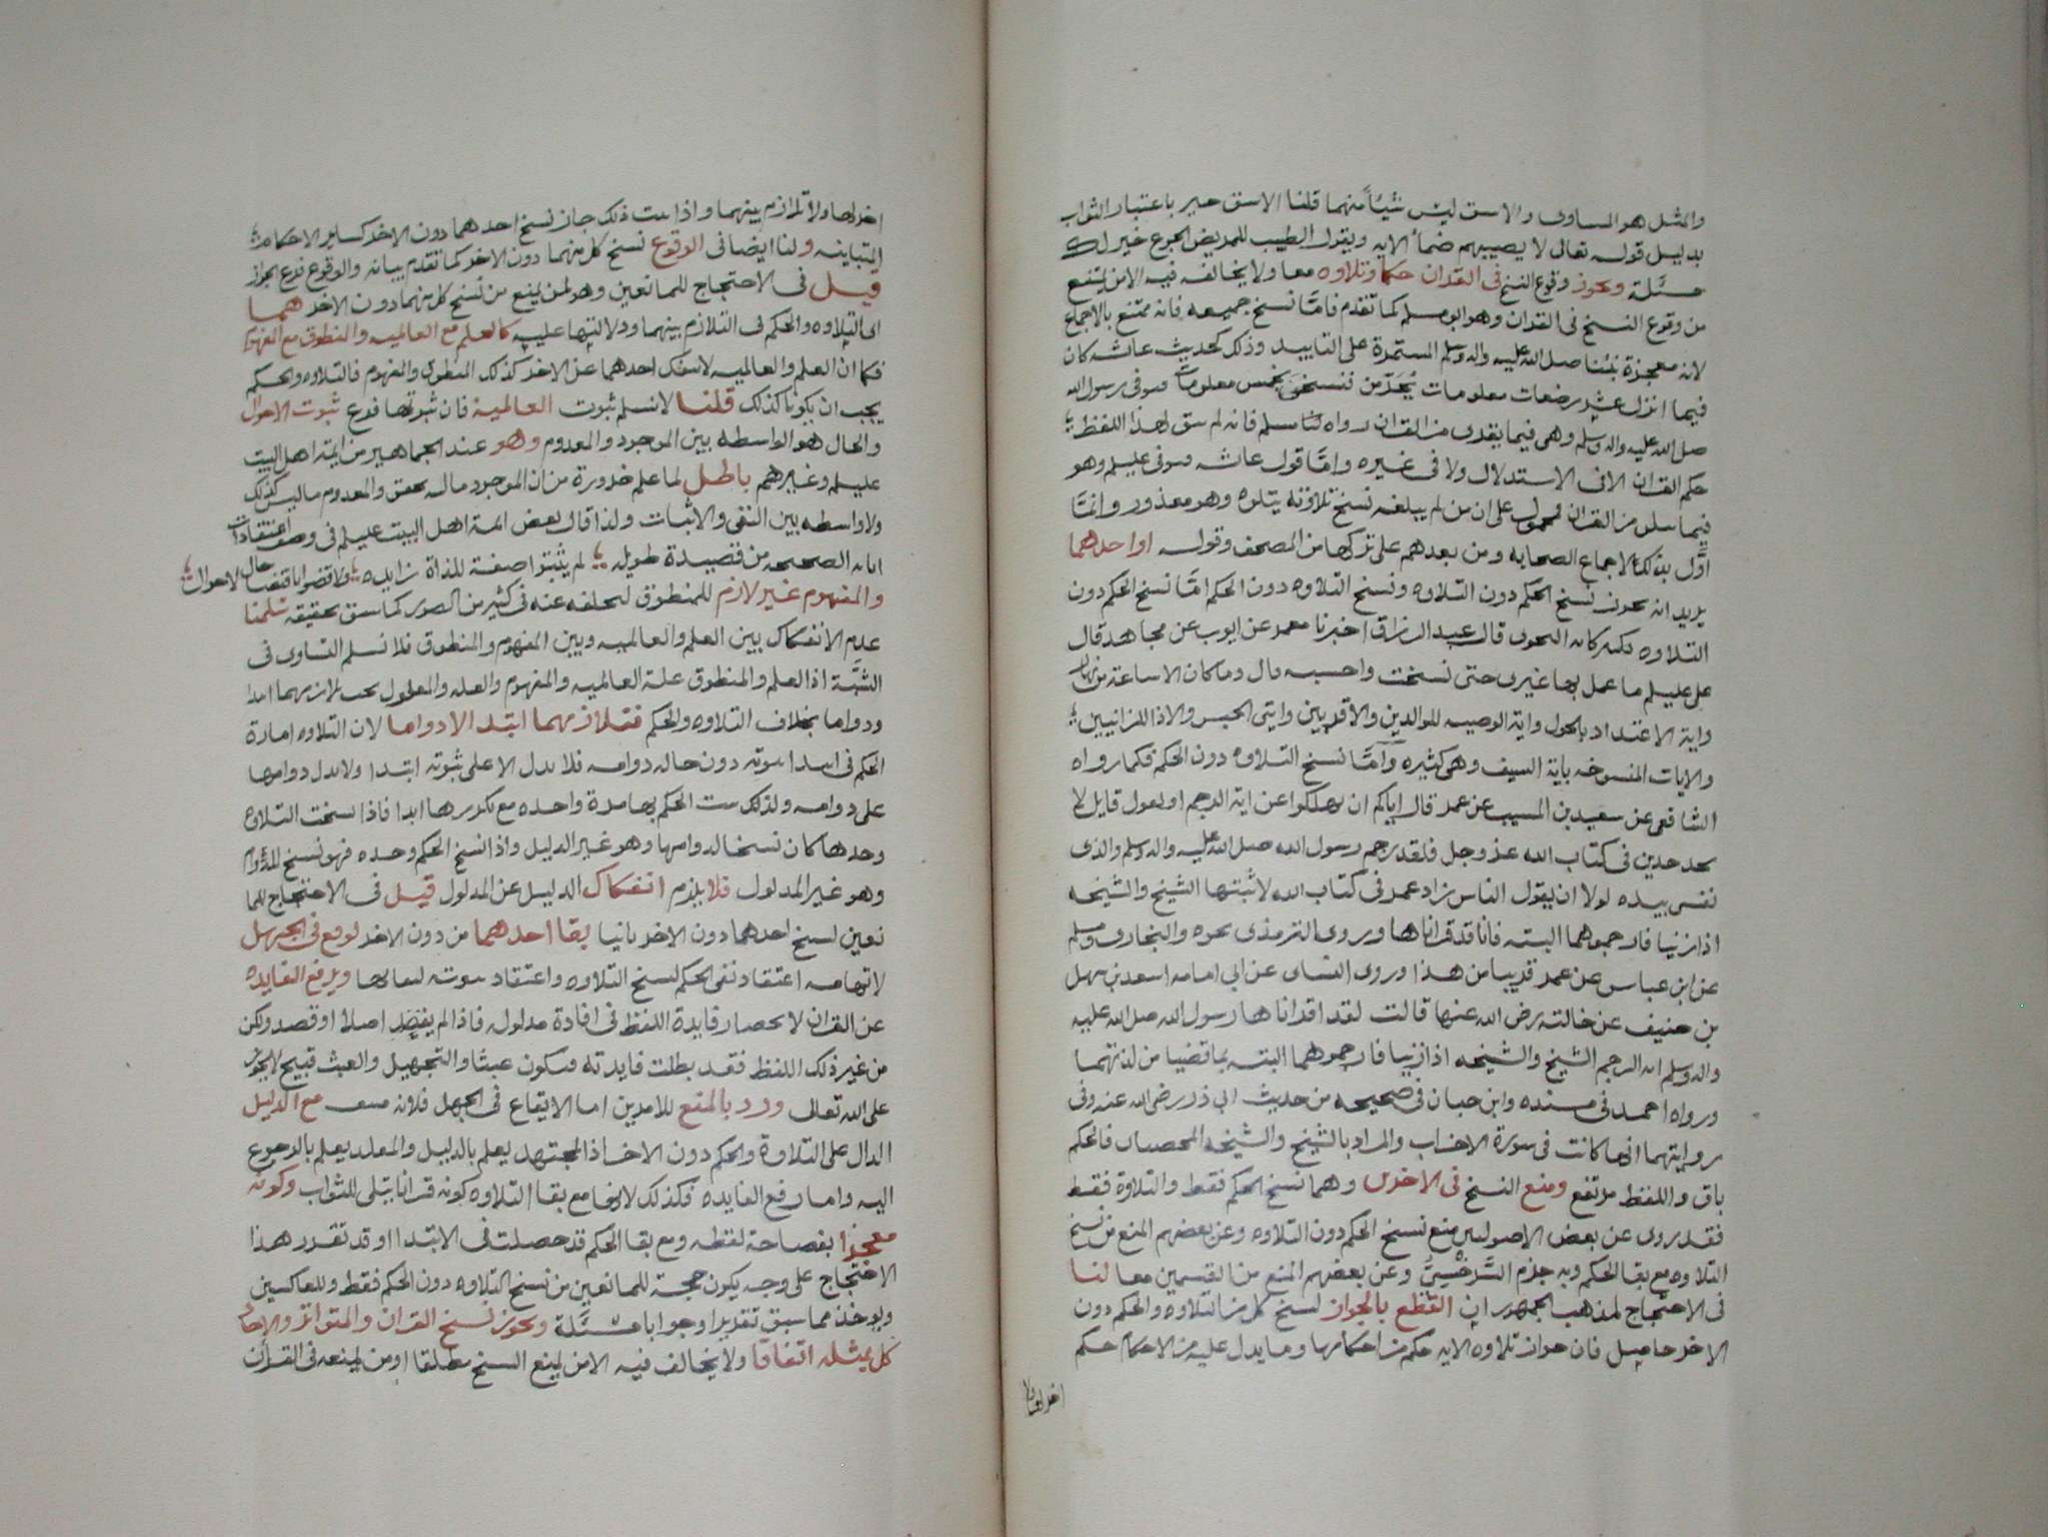 والمثل هو المساوى والاشق ليس شيئاً منهما قلنا الاشق خير باعتبار الثواب
بدليل قوله تعالى لا يصيبهم ضمأ الايه ويقول الطبيب للمريض الجوع خير لك
مسئلة ويجوز وقوع النسخ فى القران حكما وتلاوه معا ولا يخالف فيه الا من يمنع
من وقوع النسخ فى القران وهو ابو مسلم كما تقدم فامّا نسخ جميعه فانه ممتنع بالاجماع
لانه معجزة نبيّنا صلى الله عليه واله وسلم المستمرة على التابيد وذلك كحديث عائشه كان
فيما انزل عشر رضعات معلومات يُحَرّمن فنسخن بخمس معلومات فتوفى رسول الله
صلى الله عليه واله وسلم وهى فيما يقرى من القران رواه مسلم فانه لم يبق لهذا اللفظ
حكم القران لا فى الاستدلال ولا فى غيره وامّا قول عائشه فتوفى عليلم وهو
فيما يتلى من القران فمحمول على ان من لم يبلغه نسخ تلاوته يتلوه وهو معذور وانمّا
اوّل بذلك لاجماع الصحابه ومن بعدهم على تركها من المصحف وقوله او احدهما
يريد انه يجوز نسخ الحكم دون التلاوه ونسخ التلاوه دون الحكم امّا نسخ الحكم دون
التلاوه فكثير كايه النجوى قال عبد الرزاق اخبرنا معمر عن ايوب عن مجاهد قال
على عليلم ما عمل بها غيرى حتى نسخت واحسبه قال وما كان الا ساعة من نهار
واية الاعتداد بالحول واية الوصيه للوالدين والاقربين وايتى الحبس والاذا للزانيين
والايات المنسوخه باية السيف وهى كثيره وامّا نسخ التلاوه دون الحكم فكما رواه
الشافعى عن سعيد بن المسيب عن عمر قال اياكم ان تهلكوا عن اية الرجم او يقول قايل لا
نجد حدين فى كتاب الله عز وجل فلقد رجم رسول الله صلى الله عليه واله وسلم والذى
نفسى بيده لولا ان يقول الناس زاد عمر فى كتاب الله لاثبتها الشيخ والشيخه
اذا زنيا فارجموهما البته فانا قد قراناها وروى الترمذى نحوه والبخارى ومسلم
عن ابن عباس عن عمر قريبا من هذا وروى النسائى عن ابى امامه اسعد بن سهل
بن حنيف عن خالته رضى الله عنها قالت لقد اقراناها رسول الله صلى الله عليه
واله وسلم ايه الرجم الشيخ والشيخه اذا زنيا فارجموهما البته بما قضيا من لذتهما
ورواه احمد فى مسنده وابن حبان فى صحيحه من حديث ابى ذر رضى الله عنه وفى
روايتهما انها كانت فى سورة الاحزاب والمراد بالشيخ والشيخه المحصنان فالحكم
باق واللفظ مرتفع ومنع النسخ فى الاخرى وهما نسخ الحكم فقط والتلاوة فقط
فقد روى عن بعض الاصوليين منع نسخ الحكم دون التلاوه وعن بعضهم المنع من نسخ
التلاوه مع بقا الحكم وبه جزم السَّرخسِىّ وعن بعضهم المنع من القسمين معا لنا
فى الاحتجاج لمذهب الجمهور ان القطع بالجواز لنسخ كل من التلاوه والحكم دون
الاخر حاصل فان جواز تلاوه الايه حكم من احكامها وما يدل عليه من الاحكام حكم
اخر لها ولا
اخر لها ولا تلازم بينهما واذا ثبت ذلك جاز نسخ احدهما دون الاخر كساير الاحكام
المتباينه ولنا ايضا فى الوقوع نسخ كل منهما دون الاخر كما تقدم بيانه والوقوع فرع الجواز
قيل فى الاحتجاج للمانعين وهو لمن يمنع من نسخ كل منهما دون الاخر هما
اى التلاوه والحكم فى التلازم بينهما ودلالتها عليه كالعلم مع العالميه والمنطوق مع المفهوم
فكما ان العلم والعالميه لا ينفك احدهما عن الاخر كذلك المنطوق والمفهوم فالتلاوه والحكم
يجب ان يكونا كذلك قلنا لا نسلم ثبوت العالمية فان ثبوتها فرع ثبوت الاحوال
والحال هو الواسطه بين الموجود والمعدوم وهو عند الجماهير من ايمة اهل البيت
عليلم وغيرهم باطل لما علم ضرورة من ان الموجود ماله تحقق والمعدوم ما ليس كذلك
ولا واسطه بين النفى والاثبات ولذا قال بعض ايمة اهل البيت عليلم فى وصف اعتقادات
ابائه الصحيحه من قصيدة طويله لم يثبتوا صفة للذاة زايده ولا قضوا باقتضا حال لاحوال
والمفهوم غير لازم للمنطوق لتخلفه عنه فى كثير من الصور كما سبق تحقيقه سلمنا
عدم الانفكاك بين العلم والعالميه وبين المفهوم والمنطوق فلا نسلم التساوى فى
الشبَّة اذ العلم والمنطوق علة العالميه والمفهوم والعله والمعلول يجب تلازمهما ابتدا
ودواما بخلاف التلاوه والحكم فتلازمهما ابتدا لا دواما لان التلاوه امارة
الحكم فى ابتدا ثبوته دون حاله دوامه فلا تدل الا على ثبوته ابتدا ولا تدل دوامها
على دوامه ولذلك يثبت الحكم بها مرة واحده مع تكررها ابدا فاذا نسخت التلاوه
وحدها كان نسخا لدوامها وهو غير الدليل واذا نسخ الحكم وحده فهو نسخ للدوام
وهو غير المدلول فلا يلزم انفكاك الدليل عن المدلول قيل فى الاحتجاج للما
نعين لنسخ احدهما دون الاخر ثانيا بقا احدهما من دون الاخر يوقع فى الجهل
لايهامه اعتقاد نفى الحكم لنسخ التلاوه واعتقاد ثبوته لبقائها ويرفع الفايده
عن القران لانحصار فايدة اللفظ فى افادة مدلوله فاذا لم يقصد اصلا او قصد ولكن
من غير ذلك اللفظ فقد بطلت فايدته فيكون عبثا والتجهيل والعبث قبيح لا يجوز
على الله تعالى ورد بالمنع للامرين اما الايقاع فى الجهل فلانه مع الدليل
الدال على التلاوة والحكم دون الاخر اذ المجتهد يعلم بالدليل والمقلد يعلم بالرجوع
اليه واما رفع الفايده فكذلك لانها مع بقا التلاوه كونه قرانا يتلى للثواب وكونه
معجزا بفصاحة لفظه ومع بقا الحكم قد حصلت فى الابتدا وقد تقرر هذا
الاحتجاج على وجه يكون حجة للمانعين من نسخ التلاوه دون الحكم فقط وللعاكسين
ويوخذ مما سبق تقديرا وجوابا مسئلة ويجوز نسخ القران والمتواتر والاحاد
كل بمثله اتفاقا ولا يخالف فيه الا من يمنع النسخ مطلقا او من يمنعه فى القران